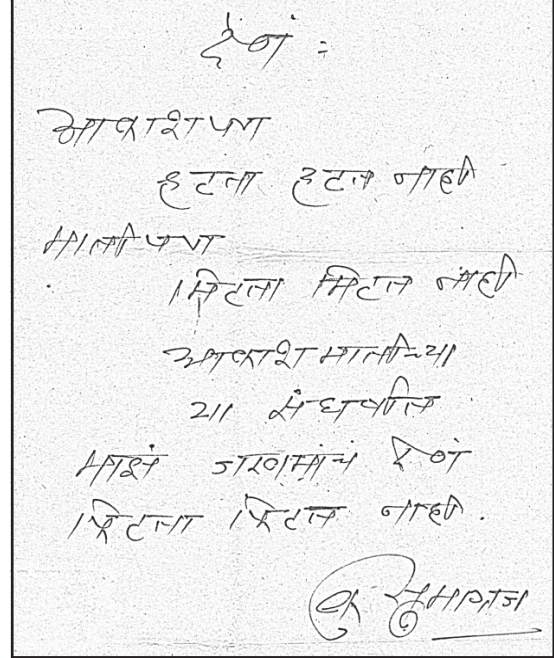 देणं :
आकाशपण
हटता हटत नाही
मातीपण
मिटता मिटत नाही
आकाश मातीच्या
या संघर्षात
माझं जखमांचं देणं
फिटता फिटत नाही.
कुसुमाग्रज